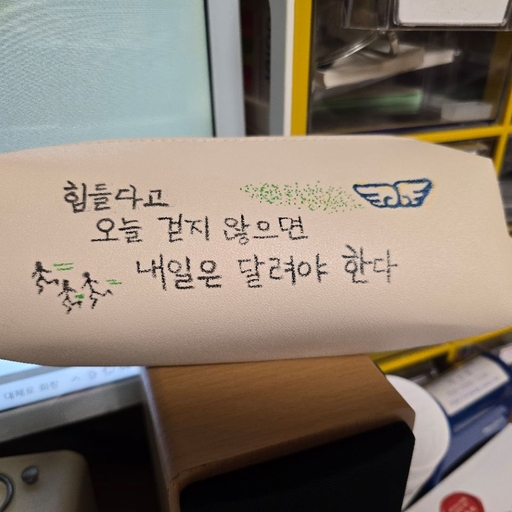 힘들다고
오늘 걷지 않으면
내일은 달려야 한다